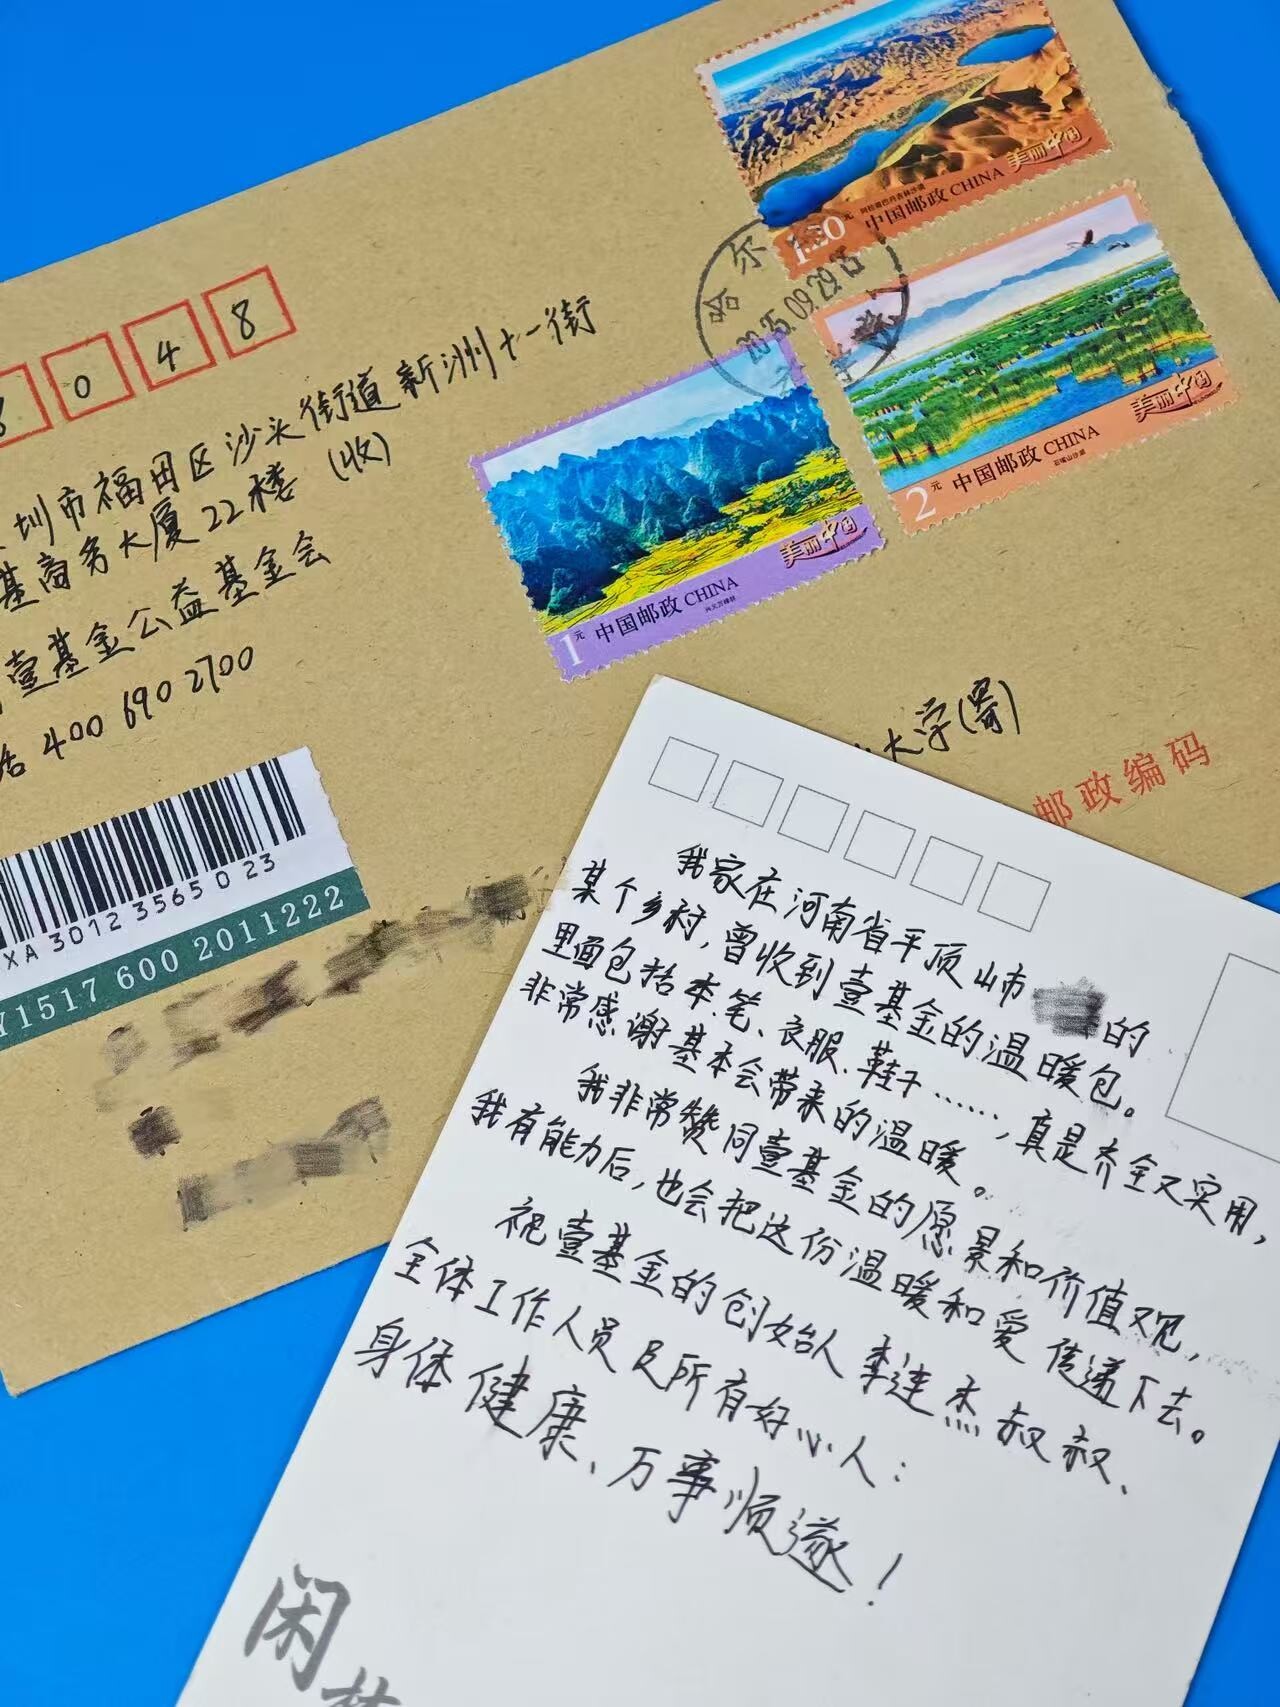 048
圳市福田区沙头街道新洲十一街
基商务大厦22楼(收)
壹基金公益基金会
400 690 2700
XA 30123565023
1517 600 2011222
1.20元
阿拉善巴丹吉林沙漠
中国邮政 CHINA
美丽中国
哈尔
2025.09.29.
2元
中国邮政 CHINA
石嘴山沙湖
美丽中国
1元
中国邮政 CHINA
兴义万峰林
美丽中国
大学(寄)
邮政编码
我家在河南省平顶山市 的
某个乡村,曾收到壹基金的温暖包。
里面包括本、笔、衣服、鞋子……,真是齐全又实用,
非常感谢基本会带来的温暖。
我非常赞同壹基金的愿景和价值观,
我有能力后,也会把这份温暖和爱传递下去。
祝壹基金的创始人李连杰叔叔、
全体工作人员及所有好心人:
身体健康、万事顺遂!
闲